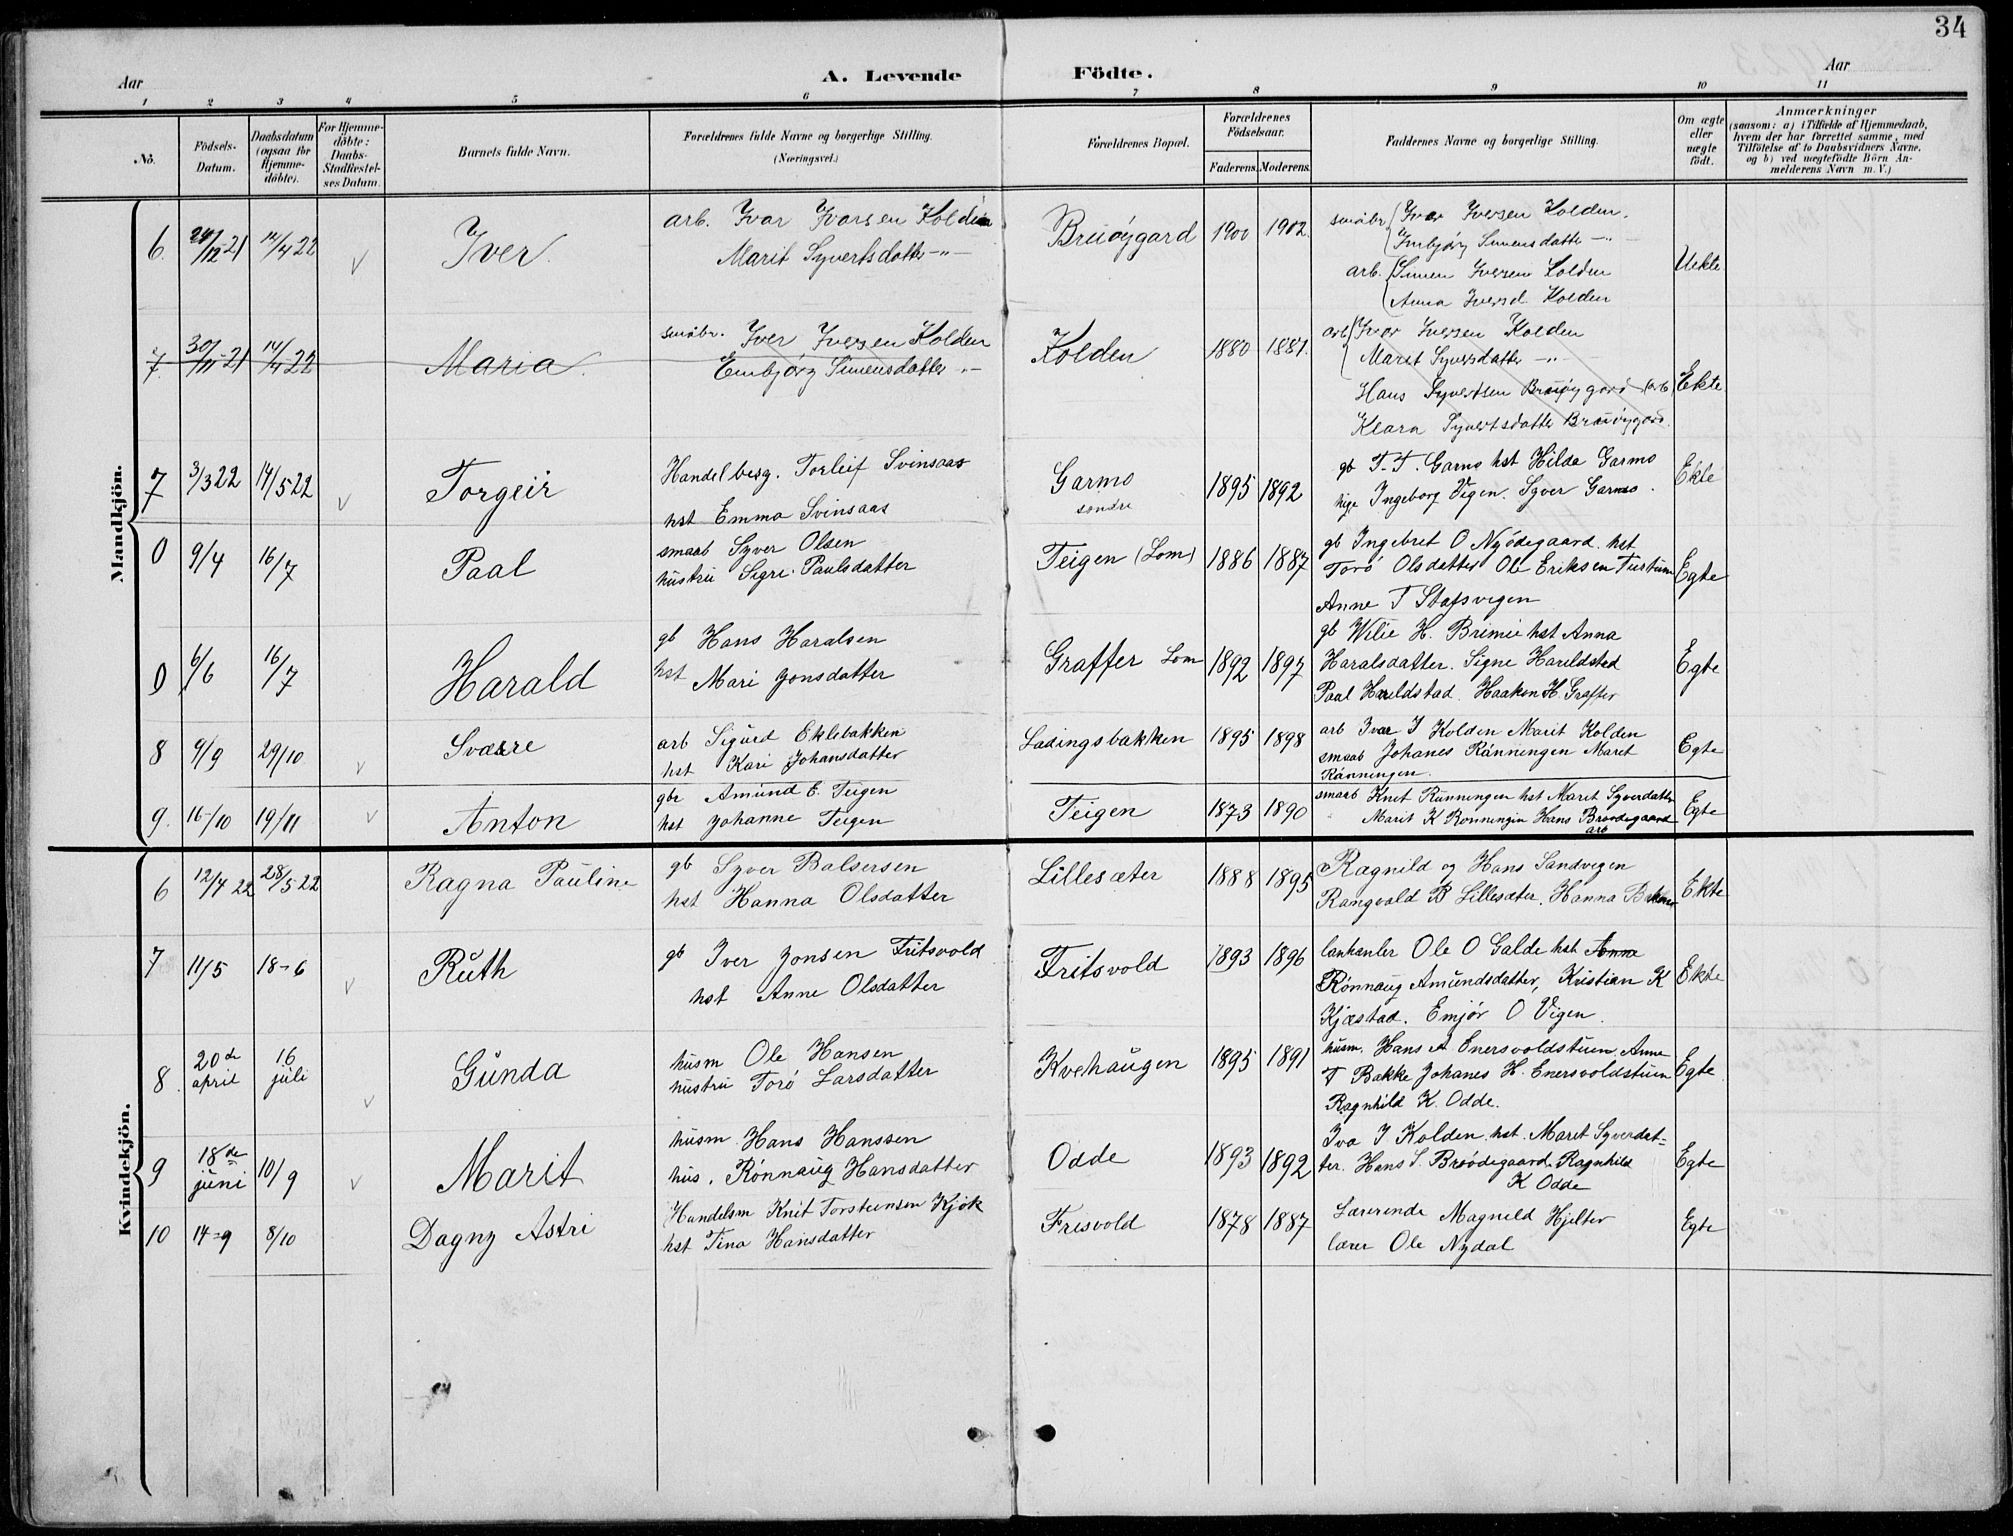 34
Aar
A. Levende Födte.
Aar
1 2 3 4 5 6 7 8 9 10 11
No.
Födsels-Datum.
Daabsdatum (ogsaa for Hjemme-döbte).
For Hjemme-döbte: Daabs-Stadfæstel-ses Datum.
Barnets fulde Navn.
Forældrenes fulde Navne og borgerlige Stilling. (Næringsvei.)
Forældrenes Bopæl.
Forældrenes Födselsaar.
Faderens. Moderens.
Faddernes Navne og borgerlige Stilling.
Om ægte eller uægte födt.
Anmærkninger
(saasom: a) i Tilfælde af Hjemmedaab,
hvem der har forrettet samme, med
Tilföielse af to Daabsvidners Navne,
og b) ved uægtefödte Börn An-
melderens Navn m. V.)
Mandkjön.
6. 24/12-21 14/4 22 Iver.
arb. Ivar Ivarsen Kolden
Marit Syvertsdatter -"-
Bruöygard 1900 1902.
småbr. Iver Iversen Kolden.
Embjørg Simensdatter -"-
arb. Simen Iversen Kolden
Anna Iversd. Kolden
Uekte
7. 30/11-21 14/4-22 Maria.
småbr. Iver Iversen Kolden
Embjørg Simensdatter -"-
Kolden 1880 1881.
arb Ivar Iversen Kolden
Marit Syversdatter -"-
Hans Syvertsen Bruöygard (arb)
Klara Syvertsdatter Bruöygard.
Ekte
7 3/3 22 14/5 22 Torgeir
Handelberg. Torleif Svinsaas
hst Emma Svinsaas
Garmo söndre 1895 1892
gb T. T. Garmo hst Hilda Garmo
pige Ingeborg Vigen. Syver Garmo.
Ekte
0 9/4 16/7 Paal
smaab Syver Olsen
hustru Sigri Paulsdatter
Teigen (Lom) 1886 1887
gb Ingebret O Nyödegaard hst
Torö Olsdatter Ole Eriksen
Anne T Stafsvegen
Egte
0 6/6 16/7 Harald
gb Hans Haralsen
hst Mari Jonsdatter
Graffer Lom 1892 1897
gb H. Brimie hst Anna
Haralsdatter. Signe Hareldstad
Paal Hareldstad. Haakon H. Graffer
Egte
8 9/9 29/10 Sværre
arb Sigurd Eklebakken
hst Kari Johansdatter
Ladingsbakken 1895 1898
arb Ivar I Kolden Marit Kolden
smaab Johanes Rønningen Maret
Rønningen.
Egte
9. 16-/10 19/11 Anton
gbr Amund E. Teigen
hst Johanne Teigen
Teigen 1873 1890
smaab Knut Runningen hst Maret Syverdatter
Marit K Ronningen Hans Broödegaard
arb
Egte
Kvindekjön.
6 12/4 22 28/5 22 Ragna Pauline
gb Syver Balsersen
hst Hanna Olsdatter
Lillesæter 1888 1895
Ragnild og Hans Sandvegen
Rangvald B Lillesæter. Hanna
Ekte
7 11/5 18-6 Ruth
gb Iver Jonsen Fritsvold
hst Anne Olsdatter
Fritsvold 1893 1896
lanhanler Ole O Galde hst Anne
Rønnaug Amundsdatter, Kristian K
Kjæstad. Emjør O Vigen.
Ekte
8 20de april 16 juli Gunda
husm Ole Hansen
hustru Torö Larsdatter
Kvehaugen 1895 1891
husm. Hans A Enersvoldstuen Anne
T Bakke Johanes H. Enersvoldstuen
Ragnhild K. Odde.
Egte
9 18de juni 10/9 Marit
husm. Hans Hanssen
hus. Rønnaug Hansdatter
Odde 1893 1892
Iva I Kolden hst. Maret Syverdat-
ter. Hans S. Broödegaard Ragnhild
K Odde
Egte
10 14-9 8/10 Dagny Astri
Handelsm Knit Torsteinsen Kjök
hst Tina Hansdatter
Fresvold 1878 1887
Lærerende Magnild Hjelter
lærer Ole Nydal
Egte